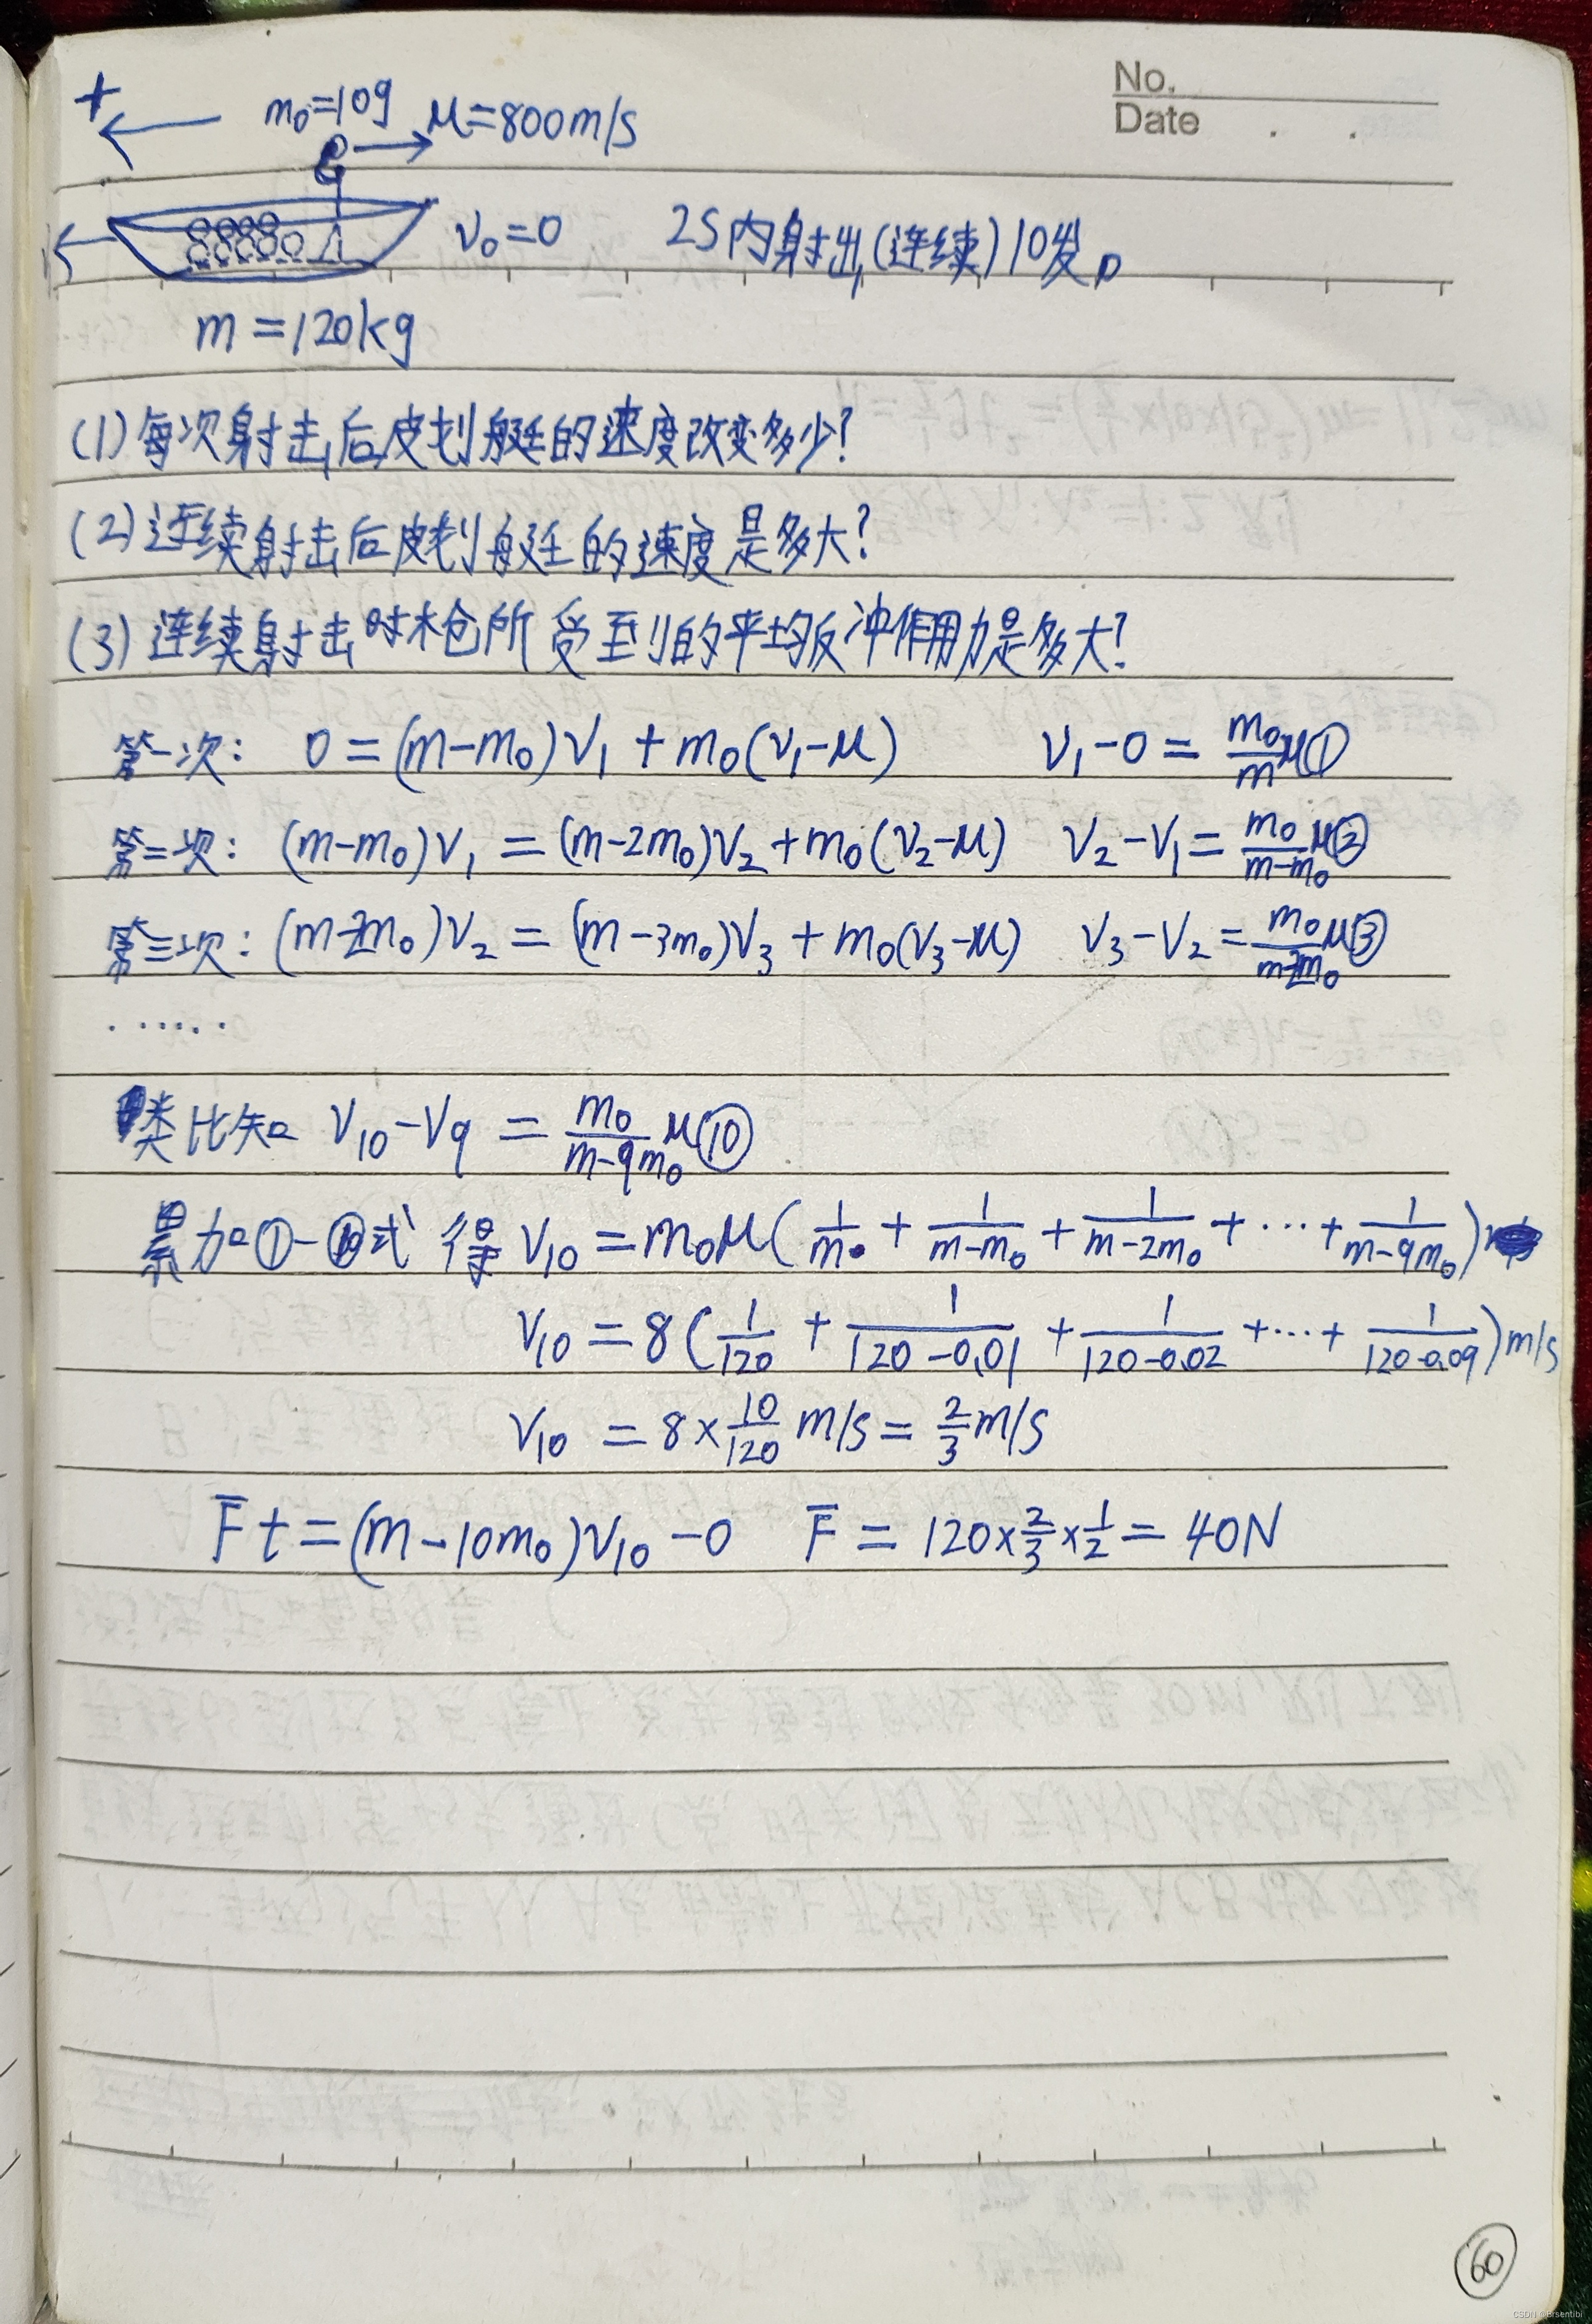 No.
Date . .
+
m₀=10g μ=800m/s
v₀=0 2S内射出(连续)10发。
m=120kg
(1)每次射击后皮划艇的速度改变多少?
(2)连续射击后皮划艇的速度是多大?
(3)连续射击时枪所受到的平均反冲作用力是多大?
第一次: 0=(m-m₀)v₁+m₀(v₁-μ) v₁-0=m₀/m μ①
第二次: (m-m₀)v₁=(m-2m₀)v₂+m₀(v₂-μ) v₂-v₁=m₀/(m-m₀) μ②
第三次: (m-2m₀)v₂=(m-3m₀)v₃+m₀(v₃-μ) v₃-v₂=m₀/(m-2m₀) μ③
......
类比知 v₁₀-v₉=m₀/(m-9m₀) μ⑩
累加①-⑩式 得 v₁₀=m₀μ(1/m+1/(m-m₀)+1/(m-2m₀)+...+1/(m-9m₀))
v₁₀=8(1/120+1/(120-0.01)+1/(120-0.02)+...+1/(120-0.09))m/s
v₁₀=8×10/120 m/s=2/3 m/s
F̄t=(m-10m₀)v₁₀-0 F̄=120×2/3×1/2=40N
60
CSDN @Brsentibi